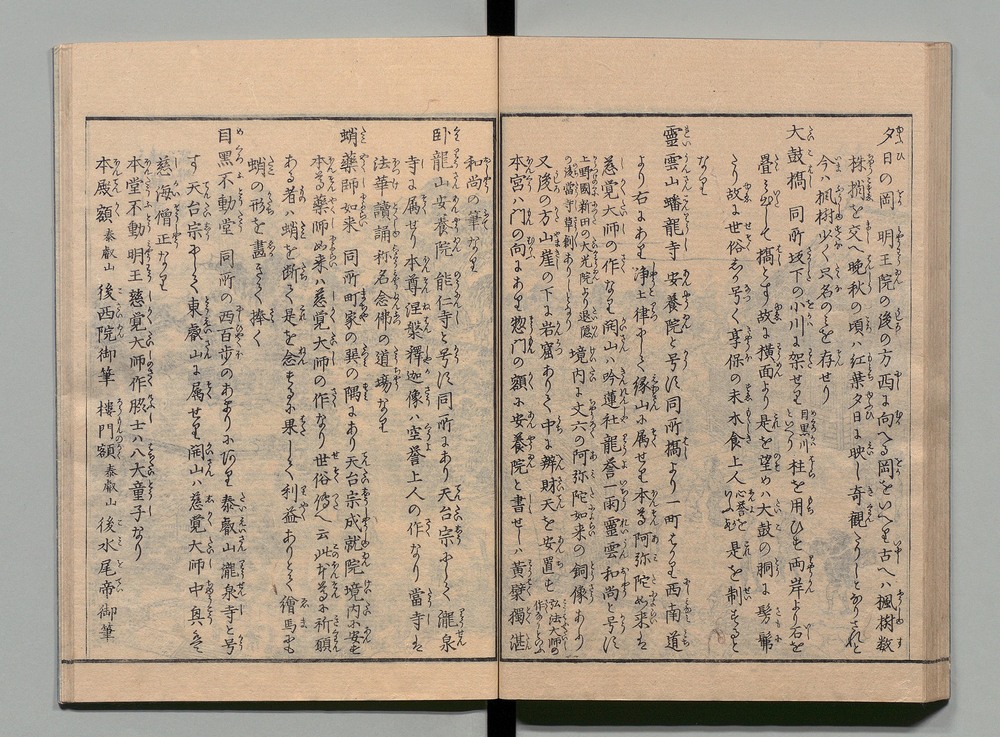 夕日の岡　明王院の後の方西に向へる岡をいへり古へハ楓樹数
株梢を交へ晩秋の頃ハ紅葉夕日に映し奇観たりしとなりされと
今ハ楓樹少く只名のミを存せり
大鼓橋　同所坂下の小川に架せり目黒川といへり柱を用ひす両岸より石を
畳ミ出して橋とす故に横面より是を望めハ大鼓の胴に髣髴
たり故に世俗しか号く享保の末木食上人是を制するとなり
なり
靈雲山蟠龍寺　安養院と号す同所橋より一町はかり西南道
より右にあり浄土律にして縁山に属せり本尊阿弥陀如来は
慈覚大師の作なり開山ハ吟蓮社龍誉一雨靈雲和尚と号す
上野國新田の大光院より退隠の後當寺草創ありしとなり境内に丈六の阿弥陀如来の銅像あり
又後の方山崖の下に岩窟ありて中に辨財天を安置す弘法大師の作なりといふ
本宮ハ門の向にあり惣門の額に安養院と書せしハ黄檗獨湛
和尚の筆なり
臥龍山安養院　能仁寺と号す同所にあり天台宗にして瀧泉
寺に属せり本尊涅槃釋迦像ハ空誉上人の作なり當寺は
法華讀誦称名念佛の道場なり
蛸藥師如来　同所町家の巽の隅にあり天台宗成就院境内に安す
本尊藥師如来ハ慈覚大師の作なり世俗傳へ云此本尊に祈願
ある者ハ蛸を断て是を念するに果して利益ありとて繪馬にも
蛸の形を畫きて捧く
目黒不動堂　同所の西百歩のあまりにあり泰叡山瀧泉寺と号
す天台宗にして東叡山に属せり開山ハ慈覚大師中興は
慈海僧正なり
本堂不動明王慈覚大師作脇士ハ八大童子なり
本殿額泰叡山　後西院御筆　樓門額泰叡山　後水尾帝御筆